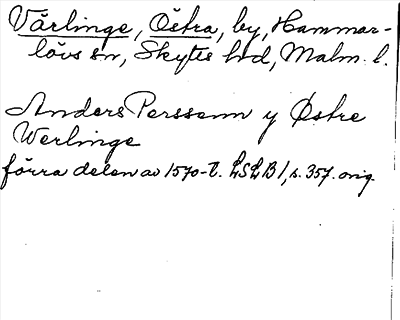 Värlinge, Östra, by, Hammar-
lövs sn, Skytts hd, Malm. l.
Anders Perssenn y Østre
Werlinge
förra delen av 1570-t. LSLB 1, s. 357. orig.